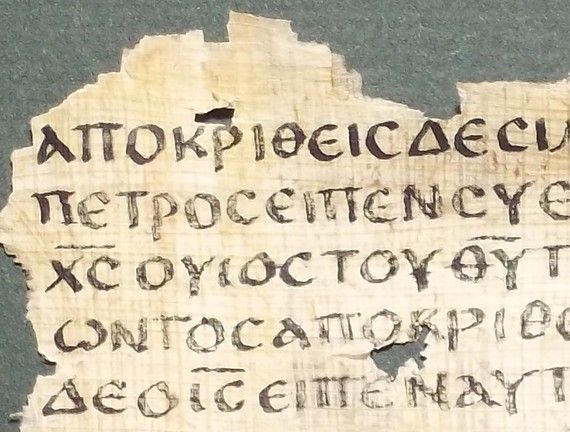 ΑΠΟΚΡΙΘΕΙϹΔΕϹΙ
ΠΕΤΡΟϹΕΙΠΕΝϹΥΕ
Χ̅Ϲ̅ΟΥΙΟϹΤΟΥΘ̅Υ̅Τ
ΩΝΤΟϹΑΠΟΚΡΙΘΕ
ΔΕΟΙ̅Ϲ̅ΕΙΠΕΝΑΥΤ